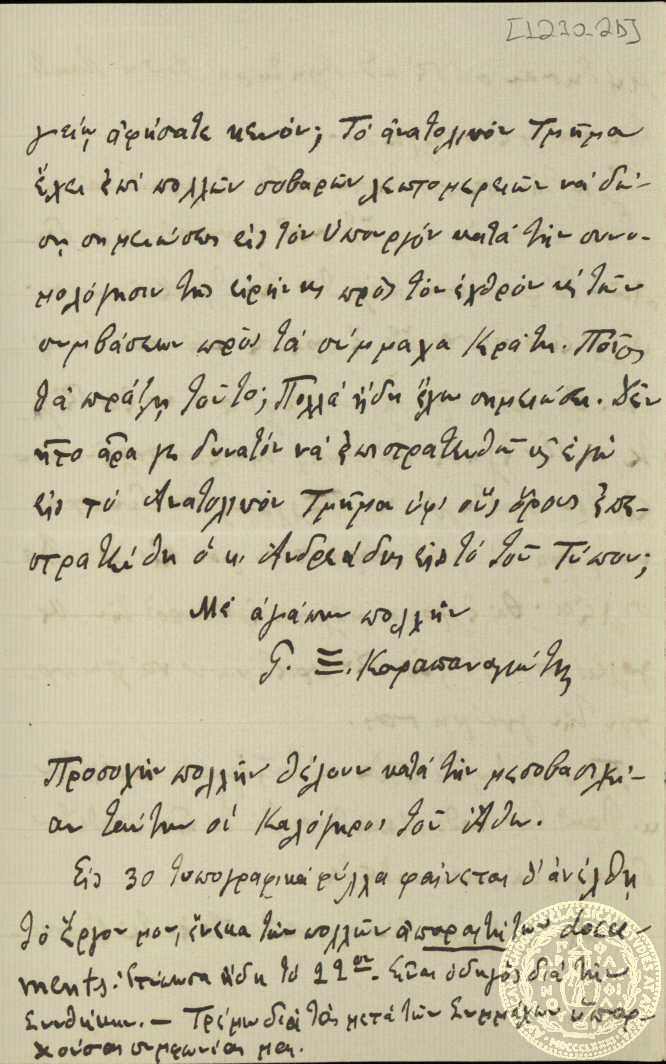 [1230-2b]
γείῳ ἀφήσατε κενόν; Τὸ ἀνατολικὸν Τμῆμα
ἔχει ἐπὶ πολλῶν σοβαρῶν λεπτομερειῶν νὰ δώ-
σῃ σημειώσεις εἰς τὸν Ὑπουργόν κατὰ τὴν συνο-
μολόγησιν τῆς εἰρήνης πρὸς τὸν ἐχθρὸν κὲ τῶν
συμβάσεων πρὸς τὰ σύμμαχα Κράτη. Ποῖος
θὰ πράξῃ τοῦτο; Πολλὰ ἤδη ἔχω σημειώσει. Δὲν
ἦτο ἆρα γε δυνατόν νὰ ἐπιστρατευθῶ κὲ ἐγὼ
εἰς τὸ Ἀνατολικὸν Τμῆμα ὑφ' οὓς ὅρους ἐπε-
στρατεύθη ὁ κ. Ἀνδρεάδης εἰς τὸ τοῦ Τύπου;
Μὲ ἀγάπην πολλὴν
Γ. Ξ. Καραπαναγιώτης
Προσοχὴν πολλὴν θέλουν κατὰ τὴν μεσοβασιλεί-
αν ταύτην οἱ Καλόγηροι τοῦ Ἄθω.
Εἰς 30 τυπογραφικὰ φύλλα φαίνεται θ' ἀνέλθῃ
τὸ ἔργον μου, ἕνεκα τῶν πολλῶν ἀπαραιτήτων docu-
ments. Ἐτύπωσα ἤδη τὸ 22ον. Εἶναι ὁδηγὸς διὰ τὴν
Συνθήκην. — Τρέμω διὰ τὰς μετὰ τῶν Συμμάχων ὑπαρ-
χούσας συμφωνίας μας.